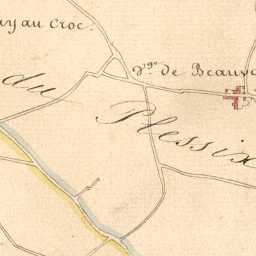 au Croc.
de Beauv
du Plessix